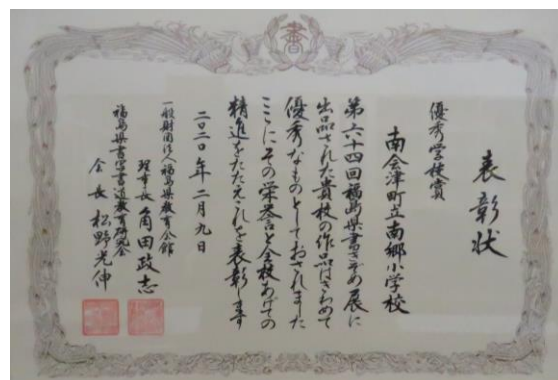 表彰状
優秀学校賞
南会津町立南郷小学校
第六十四回福島県書きぞめ展に
出品された貴校の作品はきわめて
優秀なものとしておされました
ここにその栄誉と全校あげての
精進をたたえこれを表彰します
二〇二〇年二月九日
一般財団法人福島県教育会館
理事長 角田政志
福島県書写書道教育研究会
会長 松野光伸